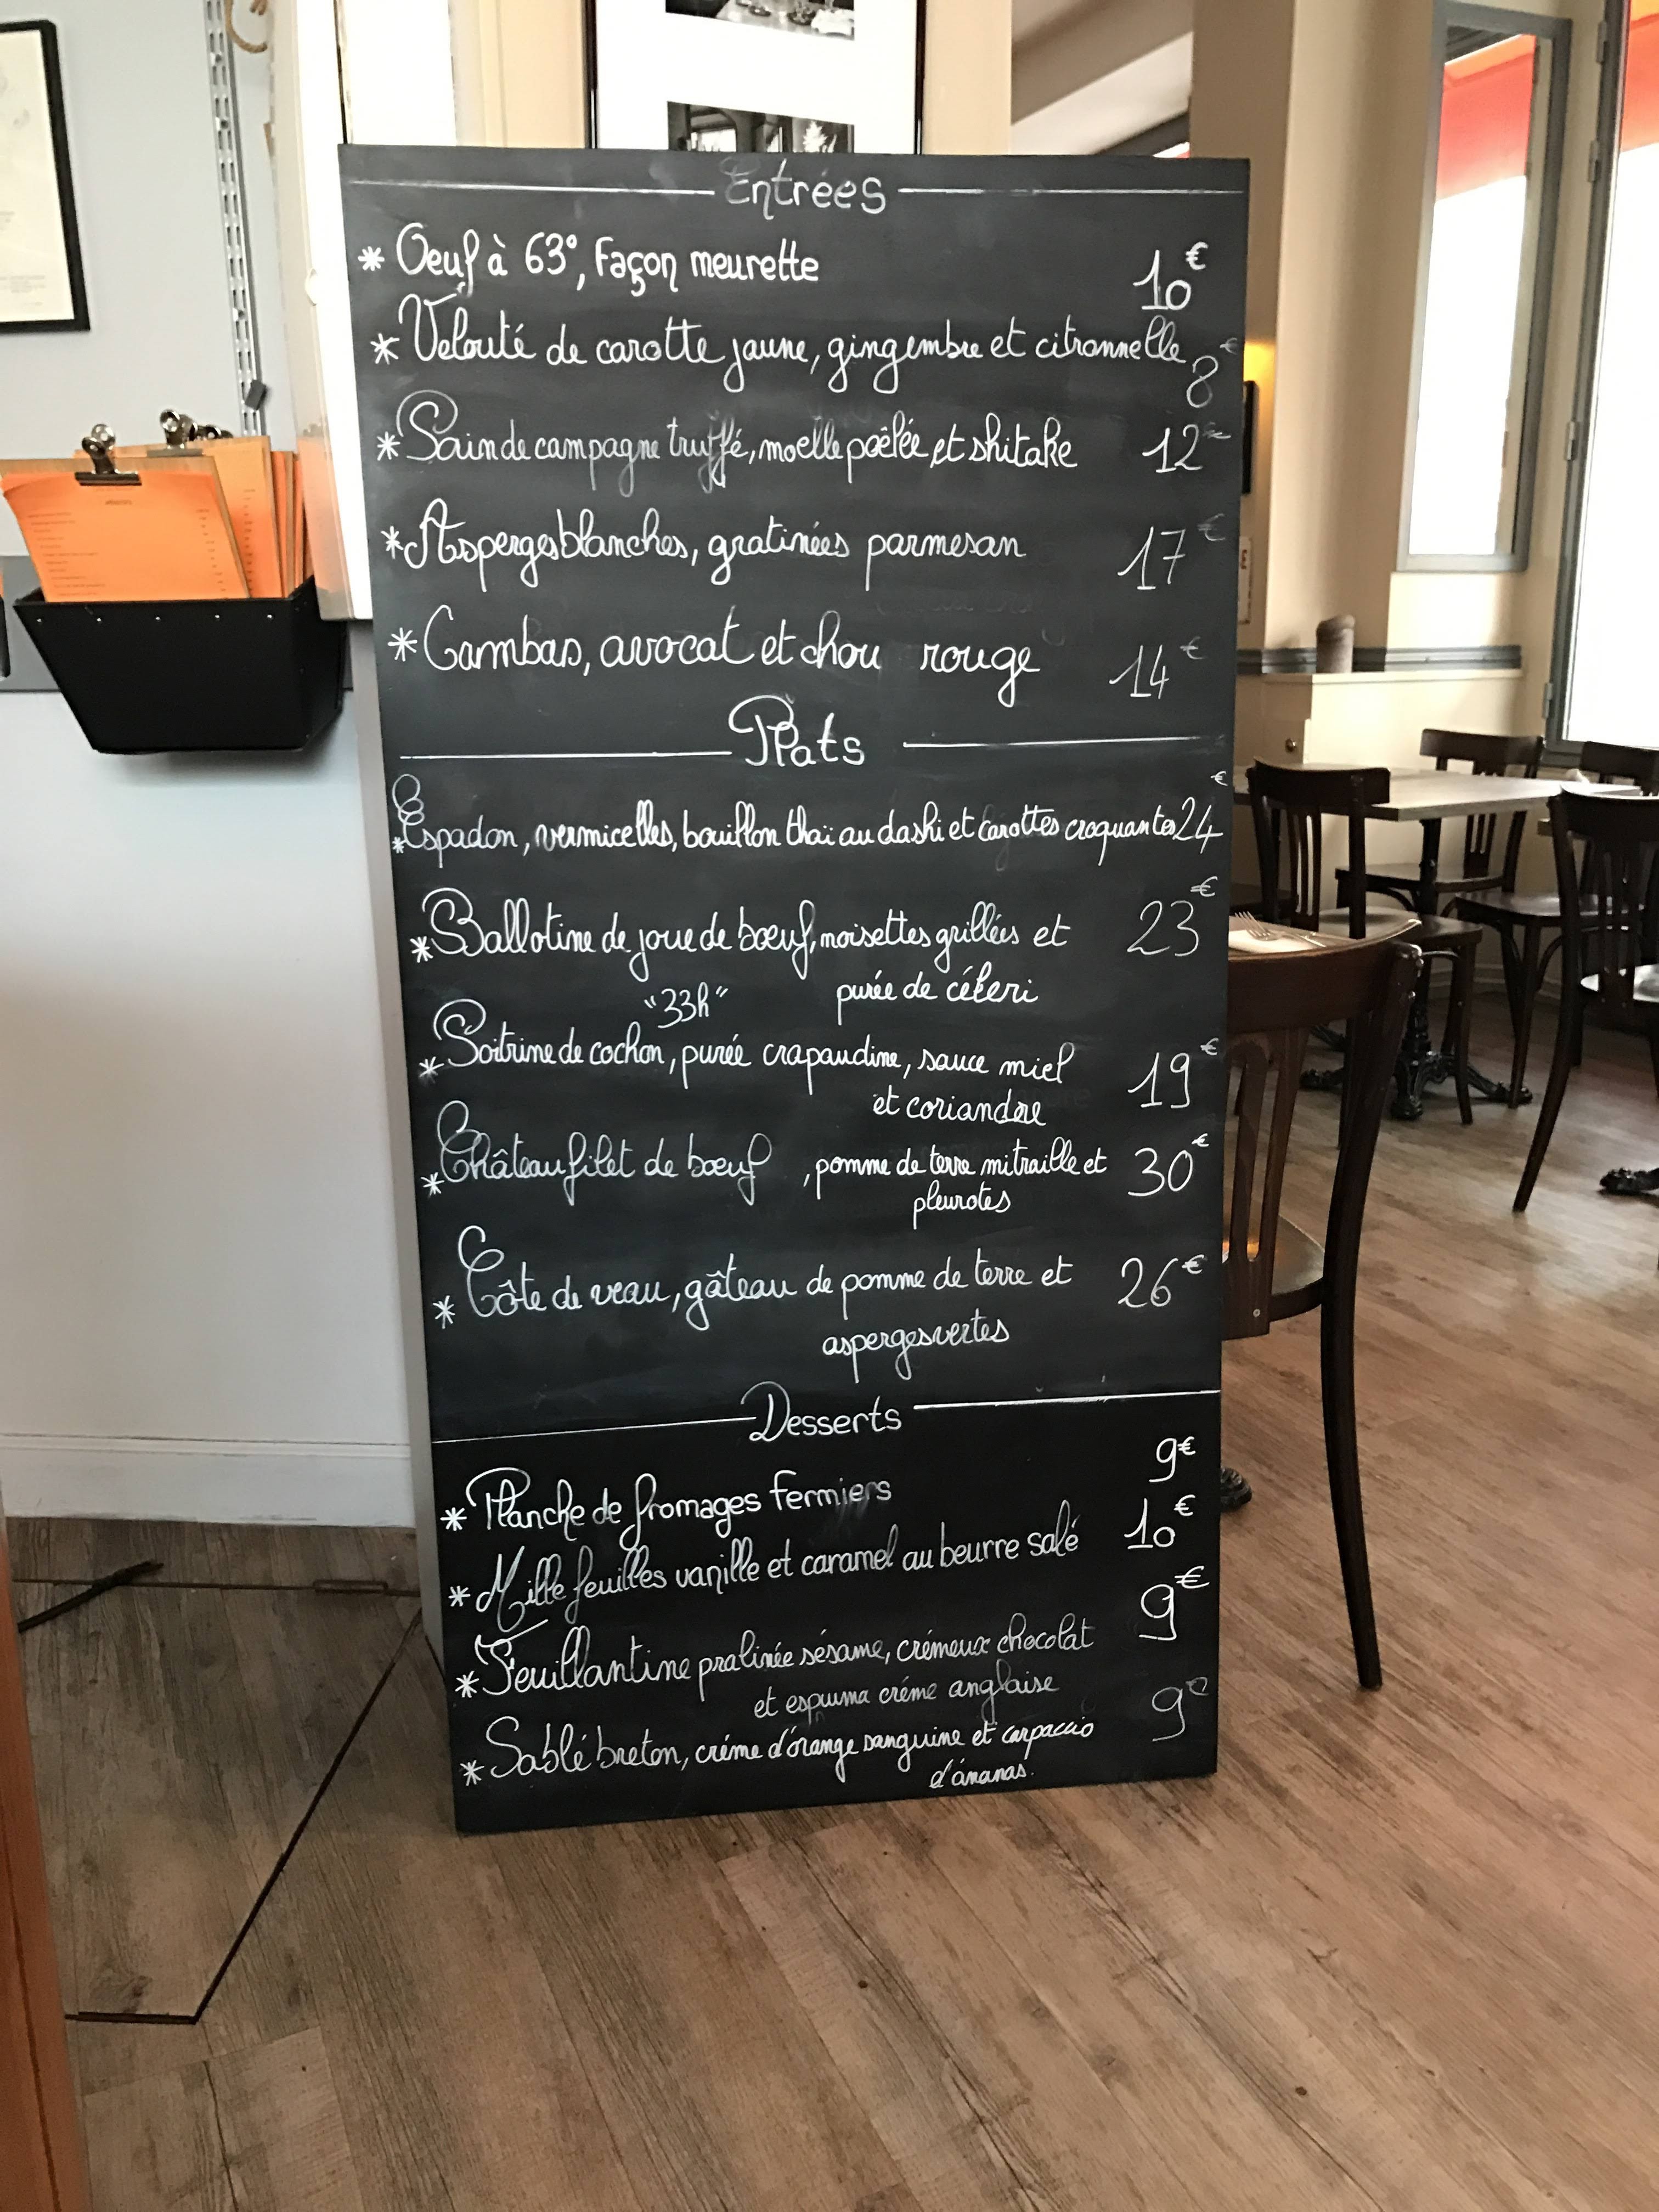 Entrées
* Oeuf à 63°, Façon meurette 10€
* Velouté de carotte jaune, gingembre et citronnelle 8€
* Pain de campagne truffé, moelle poêlée et shitake 12€
* Asperges blanches, gratinées parmesan 17€
* Gambas, avocat et chou rouge 14€
Plats
* Espadon, vermicelles, bouillon thaï au dashi et carottes croquantes 24€
* Ballotine de joue de bœuf, noisettes grillées et 23€
purée de céleri
"33h"
* Poitrine de cochon, purée crapaudine, sauce miel 19€
et coriandre
* Château filet de bœuf, pomme de terre mitraille et 30€
pleurotes
* Côte de veau, gâteau de pomme de terre et 26€
asperges vertes
Desserts
* Planche de fromages fermiers 9€
* Mille feuilles vanille et caramel au beurre salé 10€
* Feuillantine pralinée sésame, crémeux chocolat 9€
et espuma créme anglaise
* Sablé breton, créme d'orange sanguine et carpaccio 9€
d'ananas.